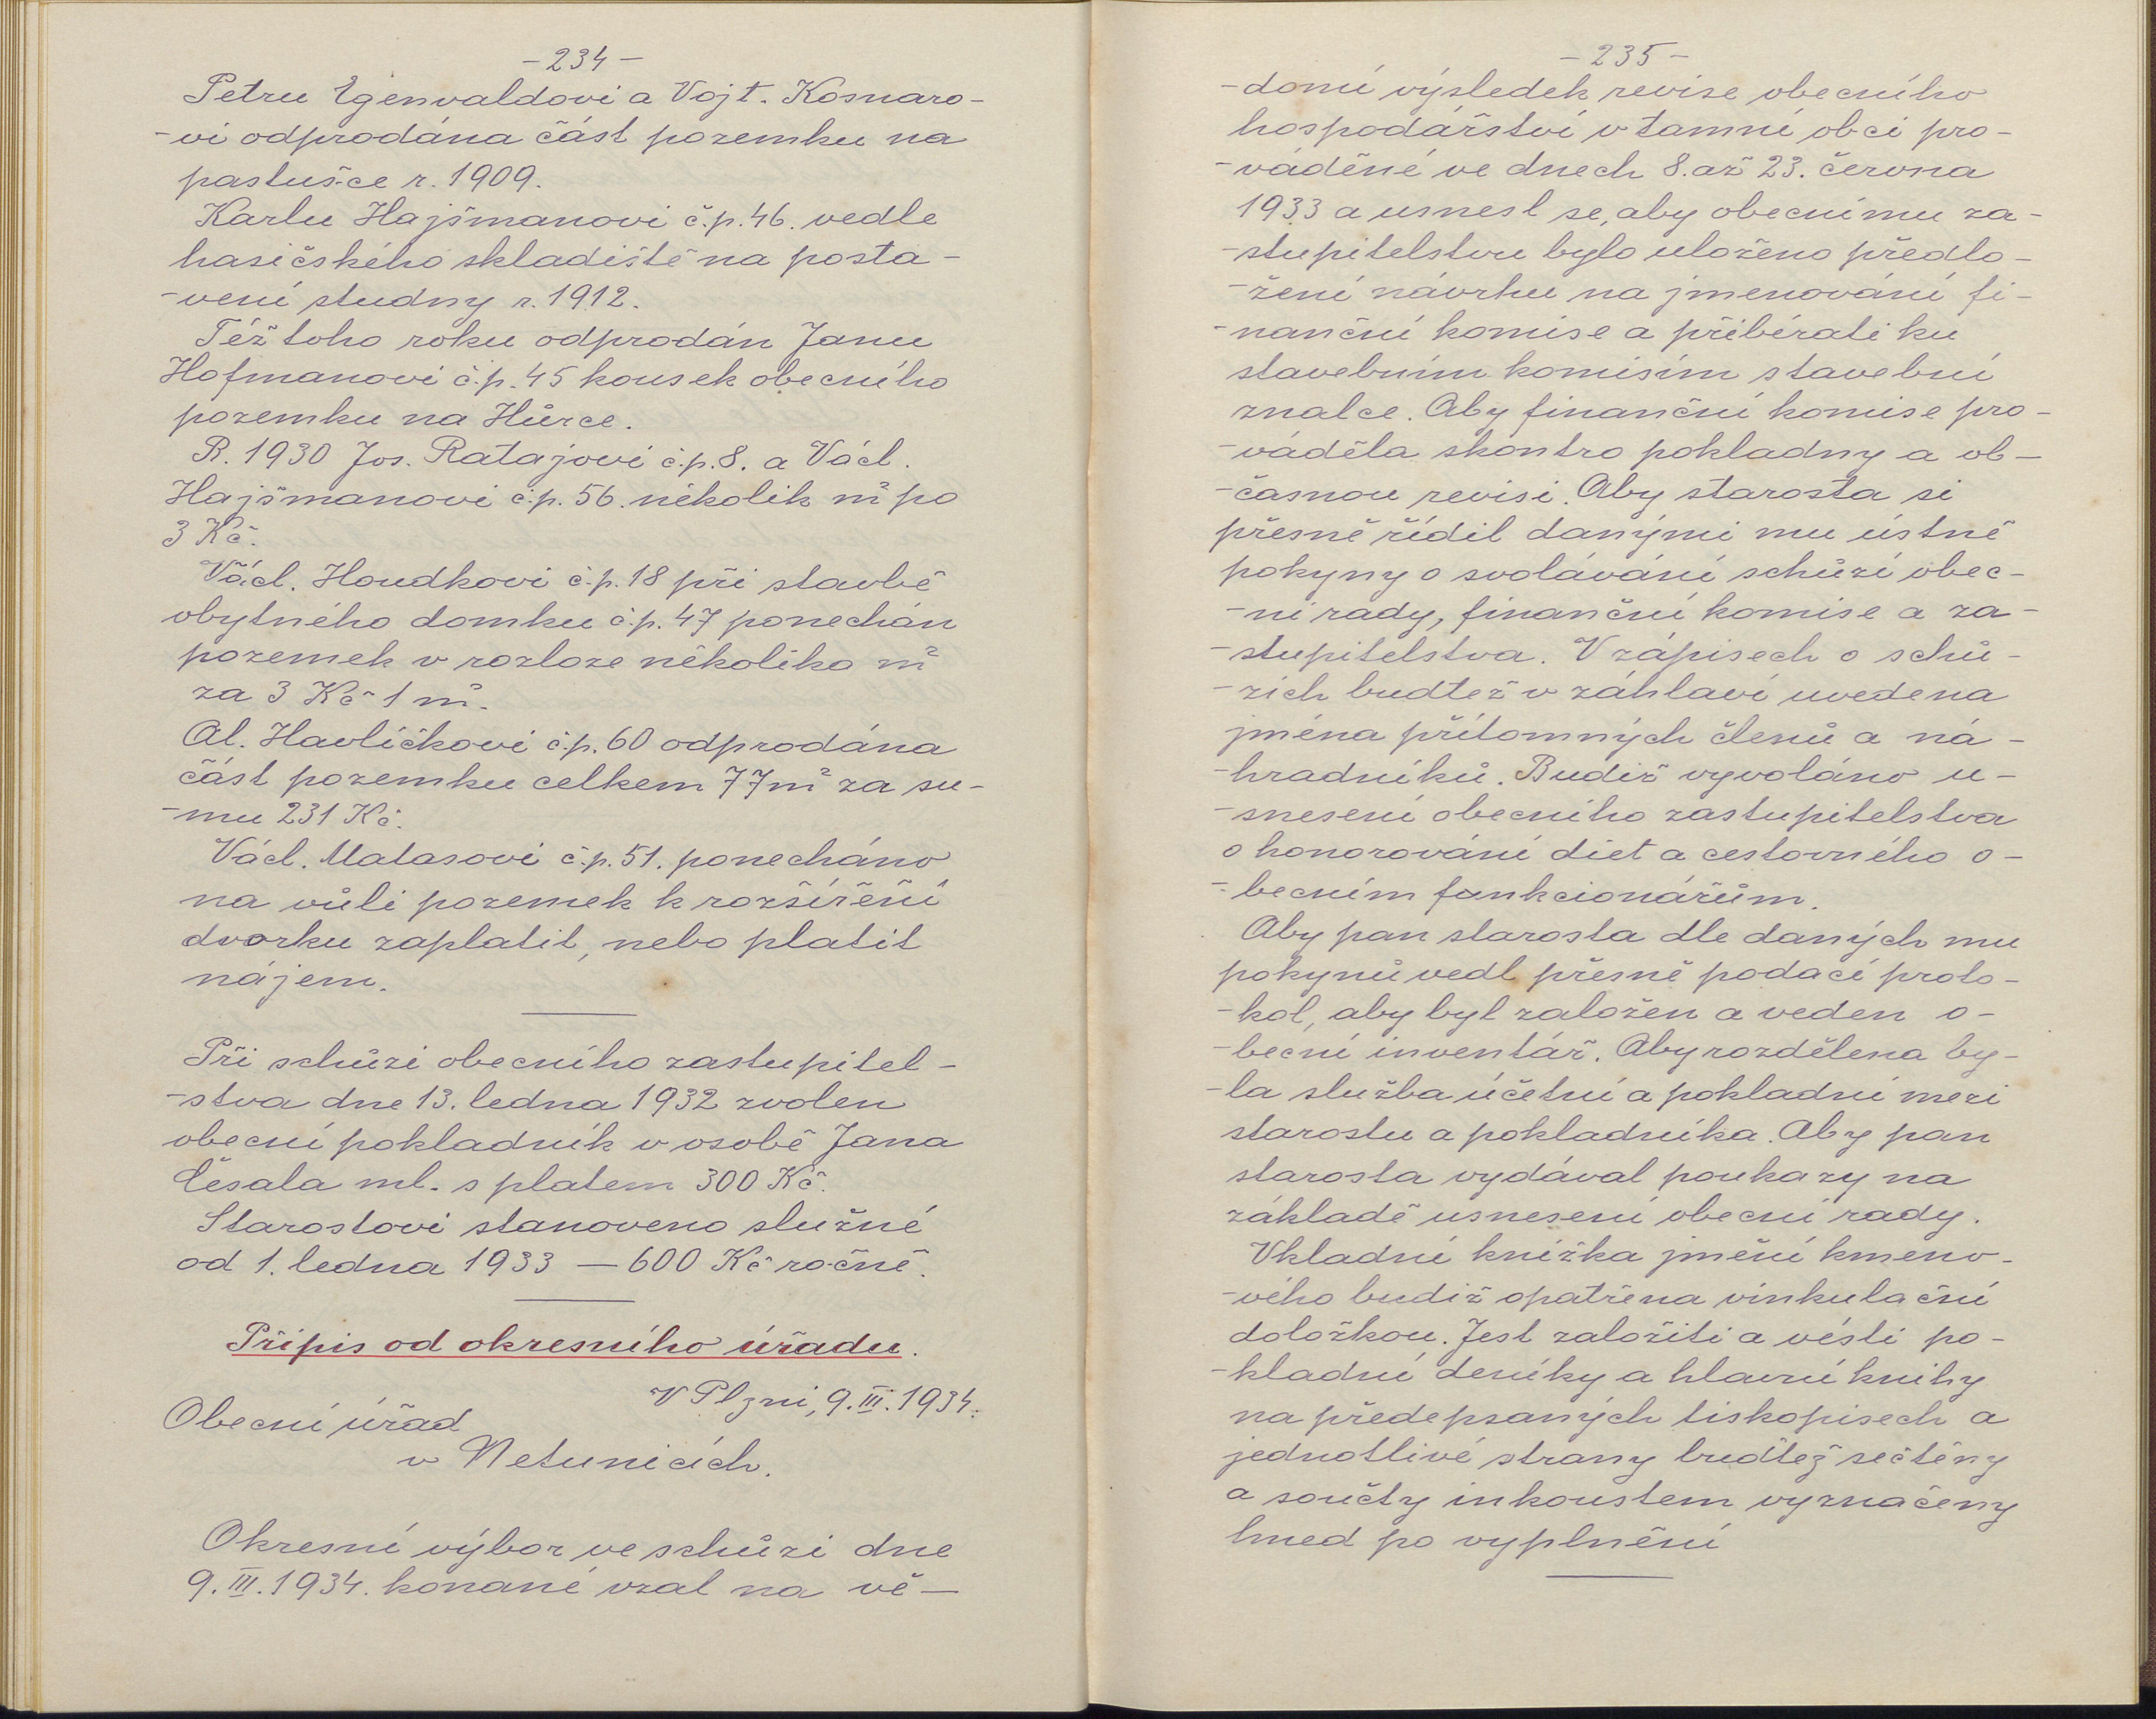 -234-
Petru Egenvaldovi a Vojt. Kosnaro-
-vi odprodána část pozemku na
pastušce r. 1909.
Karlu Hajšmanovi č.p. 46. vedle
hasičského skladiště na posta-
-vení studny r. 1912.
Též toho roku odprodán Janu
Hofmanovi č.p. 45 kousek obecního
pozemku na Hůrce.
R. 1930 Jos. Ratajovi č.p. 8. a Václ.
Hajšmanovi č.p. 56. několik m² po
3 Kč.
Václ. Houdkovi č.p. 18 při stavbě
obytného domku č.p. 47 ponechán
pozemek v rozloze několika m²
za 3 Kč 1 m².
Al. Havlíčkovi č.p. 60 odprodána
část pozemku celkem 77 m² za su-
-mu 231 Kč.
Václ. Matasovi č.p. 51. ponecháno
na vůli pozemek k rozšíření
dvorku zaplatit, nebo platit
nájem.
Při schůzi obecního zastupitel-
-stva dne 13. ledna 1932 zvolen
obecní pokladník v osobě Jana
Česala ml. s platem 300 Kč.
Starostovi stanoveno služné
od 1. ledna 1933 — 600 Kč ročně.
Přípis od okresního úřadu.
V Plzni, 9. III. 1934.
Obecní úřad
v Netunicích.
Okresní výbor ve schůzi dne
9. III. 1934. konané vzal na vě-
-235-
-domí výsledek revise obecního
hospodářství v tamní obci pro-
-váděné ve dnech 8. až 23. června
1933 a usnesl se, aby obecnímu za-
-stupitelstvu bylo uloženo předlo-
-žení návrhu na jmenování fi-
-nanční komise a přibírati ku
stavebním komisím stavební
znalce. Aby finanční komise pro-
-váděla skontro pokladny a ob-
-časnou revisi. Aby starosta si
přesně řídil danými mu ústně
pokyny o svolávání schůzí obec-
-ní rady, finanční komise a za-
-stupitelstva. V zápisech o schů-
-zích buďtež v záhlaví uvedena
jména přítomných členů a ná-
-hradníků. Budiž vyvoláno u-
-snesení obecního zastupitelstva
o honorování diet a cestovného o-
-becním funkcionářům.
Aby pan starosta dle daných mu
pokynů vedl přesně podací proto-
-kol, aby byl založen a veden o-
-becní inventář. Aby rozdělena by-
-la služba účetní a pokladní mezi
starostu a pokladníka. Aby pan
starosta vydával poukazy na
základě usnesení obecní rady.
Vkladní knížka jmění kmeno-
-vého budiž opatřena vinkulační
doložkou. Jest založiti a vésti po-
-kladní deníky a hlavní knihy
na předepsaných tiskopisech a
jednotlivé strany buďtež sečteny
a součty inkoustem vyznačeny
hned po vyplnění